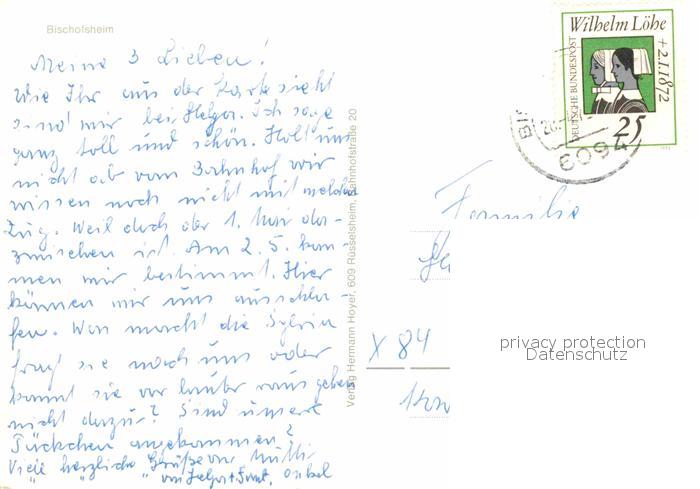 Bischofsheim
Meine 3 Lieben!
Wie Ihr aus der Karte sieht
sind mir bei Helga. Ich sage
ganz toll und schön. Holt uns
nicht ab vom Bahnhof wir
wissen noch nicht mit welchen
Zug. Weil doch der 1. Mai da-
zwischen ist. Am 2. 5. kom-
men mir bestimmt. Hier
können mir uns ausschla-
fen. Was macht die Sylvia
fragt sie nach uns oder
kommt sie vor lauter raus gehen
nicht dazu? Sind unsere
Päckchen angekommen?
Viele herzliche Grüße von Mutti
" " " von Helga +
Onkel
Verlag Hermann Hoyer, 609 Rüsselsheim, Bahnhofstraße 20
Wilhelm Löhe
+2.1.1872
DEUTSCHE BUNDESPOST
25
6094
Familie
X 84
privacy protection
Datenschutz